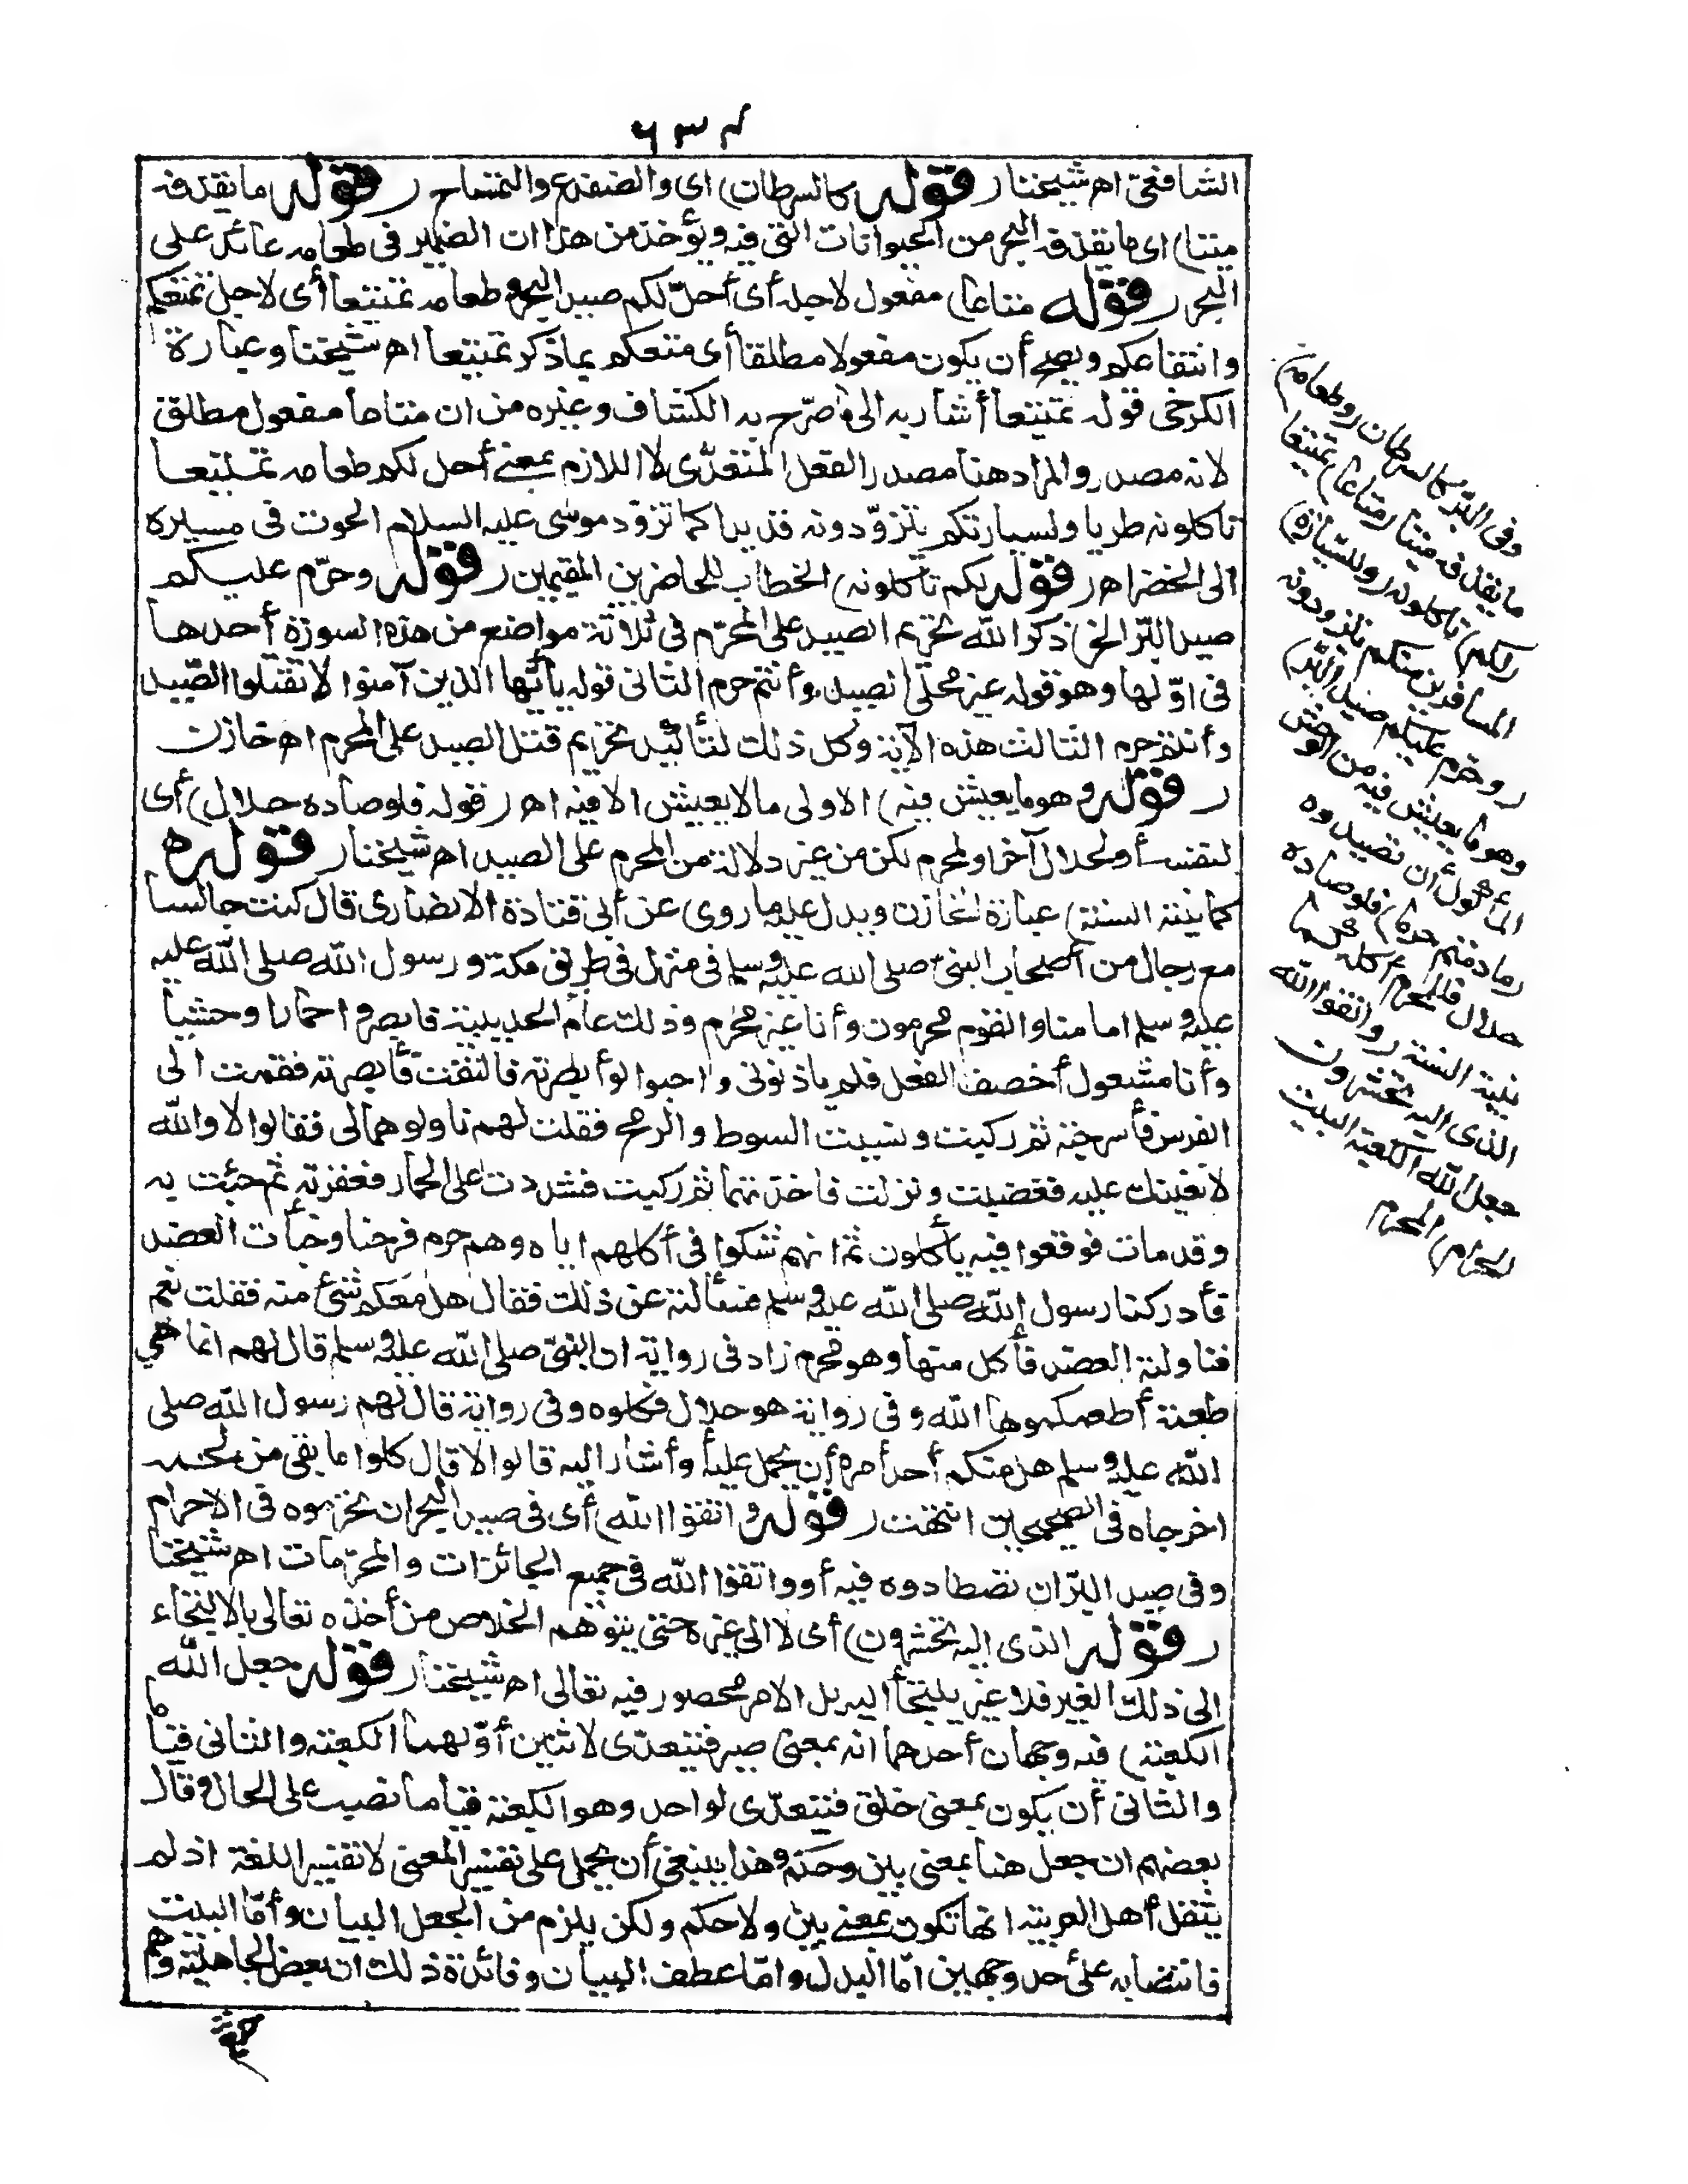 ٦٣٤
الشافعيّ اهـ شيخنا ( قوله كالسرطان) اى والضفدع والتمساح ( قوله ما يقذفه
ميتا) اى ما يقذفه البحر من الحيوانات التى فيه ويؤخذ من هذا ان الضمير فى طعامه عائد على
البحر ( قوله متاعا) مفعول لاجله أى أحلّ لكم صيد البحر وطعامه تمتيعا أى لاجل تمتعكم
وانتفاعكم ويصح أن يكون مفعولا مطلقا أى متعكم بما ذكر تمتيعا اهـ شيخنا وعبارة
الكرخى قوله تمتيعا أشار به الى ما صرّح به الكشاف وغيره من ان متاعا مفعول مطلق
لانه مصدر والمراد هنا مصدر الفعل المتعدّى لا اللازم بمعنى أحل لكم طعامه تمتيعا
تاكلونه طريا ولسيارتكم يتزوّدونه قديدا كما تزوّد موسى عليه السلام الحوت فى مسيره
الى الخضر اهـ ( قوله لكم تأكلونه) الخطاب للحاضرين المقيمين ( قوله وحرّم عليكم
صيد البّر الخ) ذكر الله تحريم الصيد على المحرّم فى ثلاثة مواضع من هذه السورة أحدها
فى اوّلها وهو قوله غير محلّى الصيد وأنتم حرم الثانى قوله يأيّها الذين آمنوا لا تقتلوا الصّيد
وأنتم حرم الثالث هذه الآية وكل ذلك لتأكيد تحريم قتل الصيد على المحرم اهـ خازن
( قوله وهو ما يعيش فيه) الاولى ما لا يعيش الا فيه اهـ ( قوله فلو صاده حلال) أى
لنفسه أو لحلال آخر او لمحرم لكن من غير دلالة من المحرم على الصيد اهـ شيخنا ( قوله
كما بينته السنة) عبارة الخازن ويدل عليه ما روى عن أبى قتادة الانصارى قال كنت جالسا
مع رجال من أصحاب النبىّ صلى الله عليه وسلم فى منزل فى طريق مكة ورسول الله صلى الله عليه
عليه وسلم امامنا والقوم محرمون وأنا غير محرم وذلك عام الحديبية فابصروا حمارا وحشيا
وأنا مشغول أخصف النعل فلم ياذنونى واحبوا لو أبصرته فالتفت فأبصرته فقمت الى
الفرس فأسرجته ثم ركبت ونسيت السوط والرمح فقلت لهم ناولوهما لى فقالوا لا والله
لا نعينك عليه فغضبت ونزلت فاخذتهما ثم ركبت فشددت على الحمار فعقرته ثم جئت به
وقد مات فوقعوا فيه يأكلون ثم انهم شكوا فى أكلهم اياه وهم حرم فرحنا وخبأت العضد
فأدركنا رسول الله صلى الله عليه وسلم فسألته عن ذلك فقال هل معكم شئ منه فقلت نعم
فناولته العضد فأكل منها وهو محرم زاد فى رواية ان النبىّ صلى الله عليه وسلم قال لهم انما هى
طعمة أطعمكموها الله وفى رواية هو حلال فكلوه وفى رواية قال لهم رسول الله صلى
الله عليه وسلم هل منكم أحد أمره أن يحمل عليها وأشار اليه قالوا لا قال كلوا ما بقى من لحمه
اخرجاه فى الصحيحين انتهت ( قوله واتقوا الله) أى فى صيد البحر ان تحرّموه فى الاحرام
وفى صيد البرّ ان تصطادوه فيه أو واتقوا الله فى جميع الجائزات والمحرّمات اهـ شيخنا
( قوله الذى اليه تحشرون) أى لا الى غيره حتى يتوهم الخلاص من أخذه تعالى بالالتجاء
الى ذلك الغير فلا غير يلتجأ اليه بل الامر محصور فيه تعالى اهـ شيخنا ( قوله جعل الله
الكعبة) فيه وجهان أحدهما انه بمعنى صير فتتعدّى لاثنين أوّلهما الكعبة والثانى قياما
والثانى أن يكون بمعنى خلق فتتعدّى لواحد وهو الكعبة قياما نصب على الحال وقال
بعضهم ان جعل هنا بمعنى بين وحكم وهذا ينبغى أن يحمل على تفسير المعنى لا تفسير اللغة اذ لم
ينقل أهل العربية انها تكون بمعنى بين ولا حكم ولكن يلزم من الجعل البيان وأمّا البيت
فانتصابه على أحد وجهين امّا البدل وامّا عطف البيان وفائدة ذلك ان بعض الجاهلية وهم
وفى البّر كالسرطان (وطعامه)
ما يقذفه ميتا (متاعا) تمتيعا
(لكم) تاكلونه (وللسّيارة)
المسافرين منكم يتزودونه
(وحرّم عليكم صيد البّر)
وهو ما يعيش فيه من الوحش
المأكول أن تصيدوه
(ما دمتم حرما) فلو صاده
حلال فللمحرم أكله كما
بينته السنة (واتقوا الله
الذى اليه تحشرون
جعل الله الكعبة البيت
الحرام) المحرم